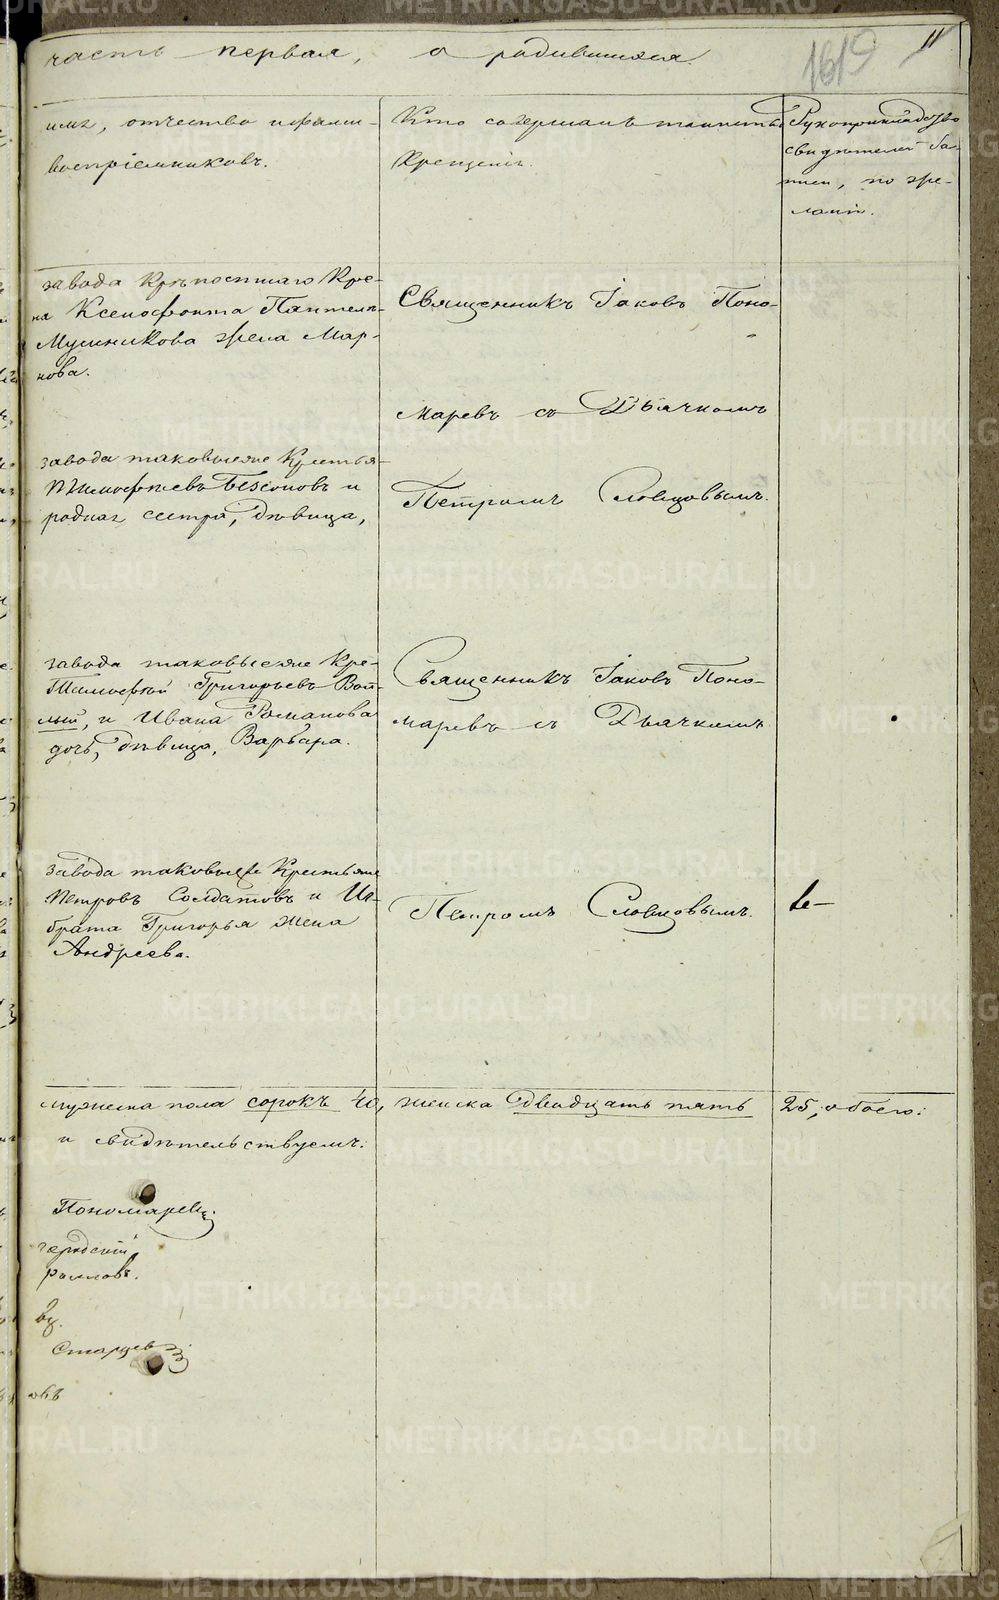 часть первая, о родившихся.
1619
11
имя, отчество и фами-
воспріемниковъ.
Кто совершалъ таинство
Крещенія.
Рукоприкладство
свидѣтелей за-
писи, по же-
ланію.
завода Крѣпостнаго Кре-
на Ксенофонта Пантелѣ-
Мусникова жена Мар-
нова.
Священникъ Іаковъ Поно-
маревъ съ Дьячкомъ
Петромъ Словцовымъ.
завода таковыеже Крестья-
Тимофѣевъ Безсоновъ и
родная сестра, дѣвица,
завода таковыеже Кре-
Тимофѣй Григорьевъ Вой-
лый, и Ивана Романова
дочь, дѣвица, Варвара.
Священникъ Іаковъ Поно-
маревъ съ Дьячкомъ
завода таковыеже Крестьяне
Петровъ Солдатовъ и Ив-
брата Григорья жена
Андреева.
Петромъ Словцовымъ.
мужеска пола сорокъ 40, женска двадцать пять 25, обоего:
и свидѣтельствуемъ:
Пономаревъ
Старцевъ
овъ
METRIKI.GASO-URAL.RU